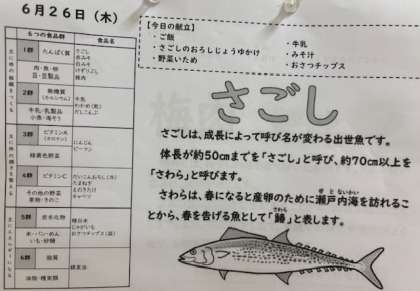 6月26日（木）
【今日の献立】
・ご飯
・さごしのおろしじょうゆかけ
・野菜いため
・牛乳
・みそ汁
・おさつチップス
６つの食品群
食品名
1群
たんぱく質
肉・魚・卵
豆・豆製品
さごし
赤みそ
白みそ
豚肉
2群
無機質
(カルシウム)
牛乳・乳製品
小魚・海そう
牛乳
わかめ(乾)
だしこんぶ
3群
ビタミンA
(カロテン)
緑黄色野菜
にんじん
ピーマン
4群
ビタミンC
その他の野菜
果物・きのこ
だいこんおろし(冷)
たまねぎ
えのきたけ
キャベツ
5群
炭水化物
米・パン・めん
いも・砂糖
精白米
じゃがいも
おさつチップス(袋)
6群
脂質
油脂・種実類
さごし
さごしは、成長によって呼び名が変わる出世魚です。
体長が約50cmまでを「さごし」と呼び、約70cm以上を
「さわら」と呼びます。
さわらは、春になると産卵のために瀬戸内海を訪れるこ
とから、春を告げる魚として「鰆」と表します。